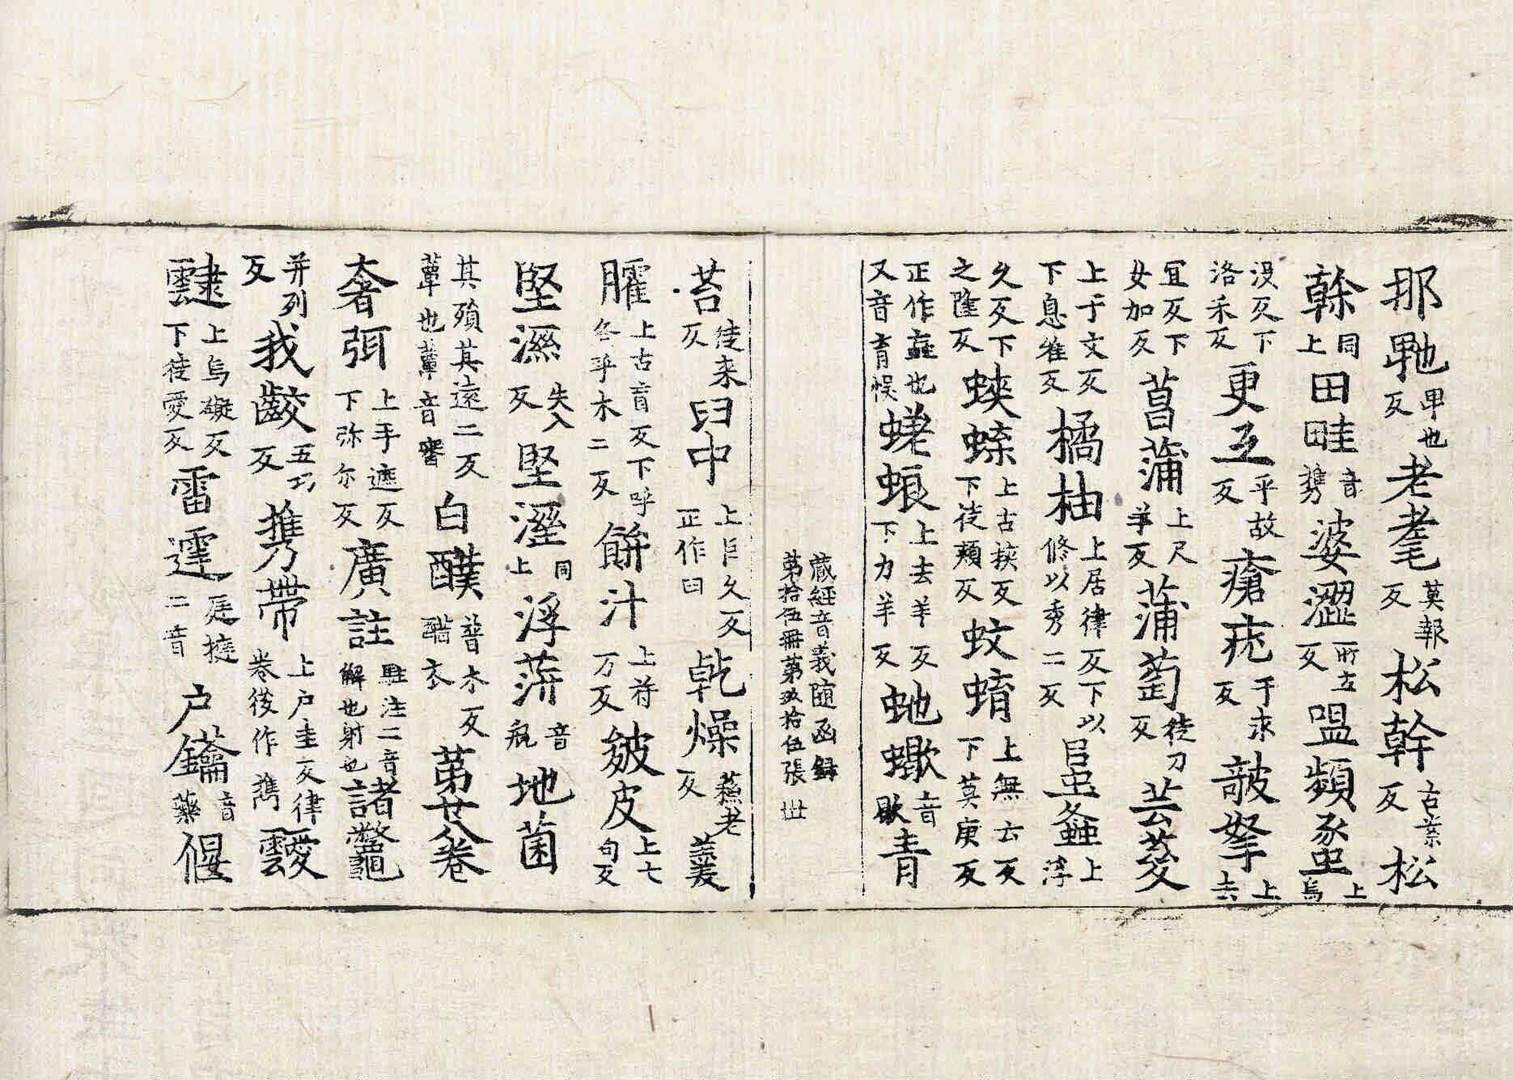 那㔠甲也反老耄莫報反松幹古案反松
榦同上田畦音攜婆澀所立反嗢蘋蚉上烏
没反下洛禾反更互乎故反瘡疣于求反㪉拏上去
宜反下女加反菖蒲上尺羊反蒲萄徒刀反芸荾
上于文反下息雖反橘柚上居律反下以修以秀二反蚷螽上浮
久反下之隆反蛺蝶上古挾反下徒頰反蚊蜟上無云反下莫庚反
正作蝱也又音育悮蜣蜋上去羊反下力羊反虵蠍音歇青
藏經音義隨函録
第拾伍冊第五拾伍張 丗
苔徒來反臼中上巨久反正作臼乾燥蘓老反羹
臛上古盲反下呼各乎木二反䴵汁上苻万反皴皮上七旬反
堅濕失入反堅溼同上浮蓱音瓶地菌
其殞其遠二反蕈也蕈音審白醭普木反醭衣苐廿八卷
奢弭上手遮反下弥尔反廣註駐注二音解也射也諸鼈
并列反我齩五巧反攜帶上户圭反律卷後作攜靉
靆上烏礙反下徒愛反雷霆庭挺二音户鑰音藥偃